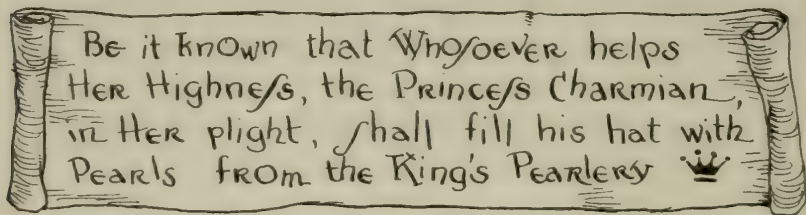 Be it known that Whoſoever helps
Her Highneſs, the Princeſs Charmian,
in Her plight, ſhall fill his hat with
Pearls from the King's Pearlery